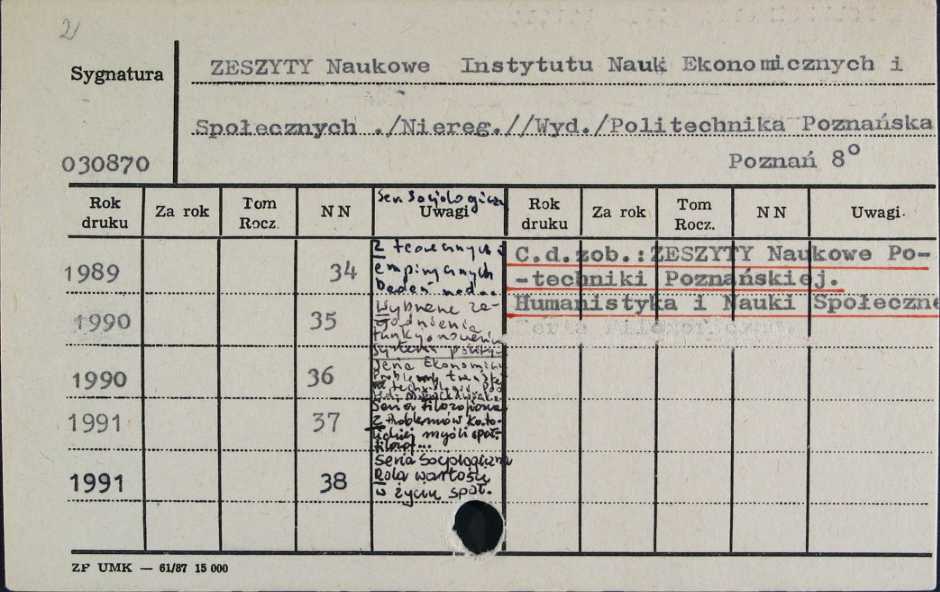 2
Sygnatura
ZESZYTY Naukowe Instytutu Nauk Ekonomicznych i
Społecznych ./Niereg.//Wyd./Politechnika Poznańska
030870
Poznań 8°
Rok druku
Za rok
Tom Rocz.
N N
Ser. Socjologiczna
Uwagi
Rok druku
Za rok
Tom Rocz.
N N
Uwagi
1989 34 Z teoretycznych i
empirycznych
badań nad...
1990 35 Wybrane za-
gadnienia
funkcjonowania
systemu
1990 36 Seria Ekonomiczna
Problemy
1991 37 Seria filozoficzna
Z Problemów kato-
lickiej myśli społ.
filozof...
1991 38 Seria Socjologiczna
Rola wartości
w życiu społ.
C.d.zob.:ZESZYTY Naukowe Po-
-techniki Poznańskiej.
Humanistyka i Nauki Społeczne
Seria Filozoficzna.
ZP UMK — 61/87 15 000